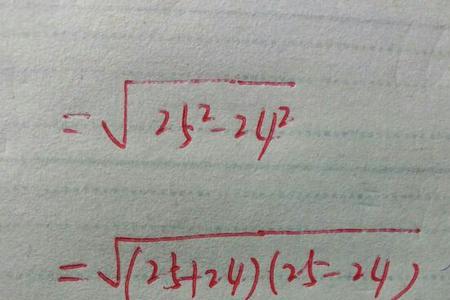 =√25²-24²
=√(25+24)(25-24)